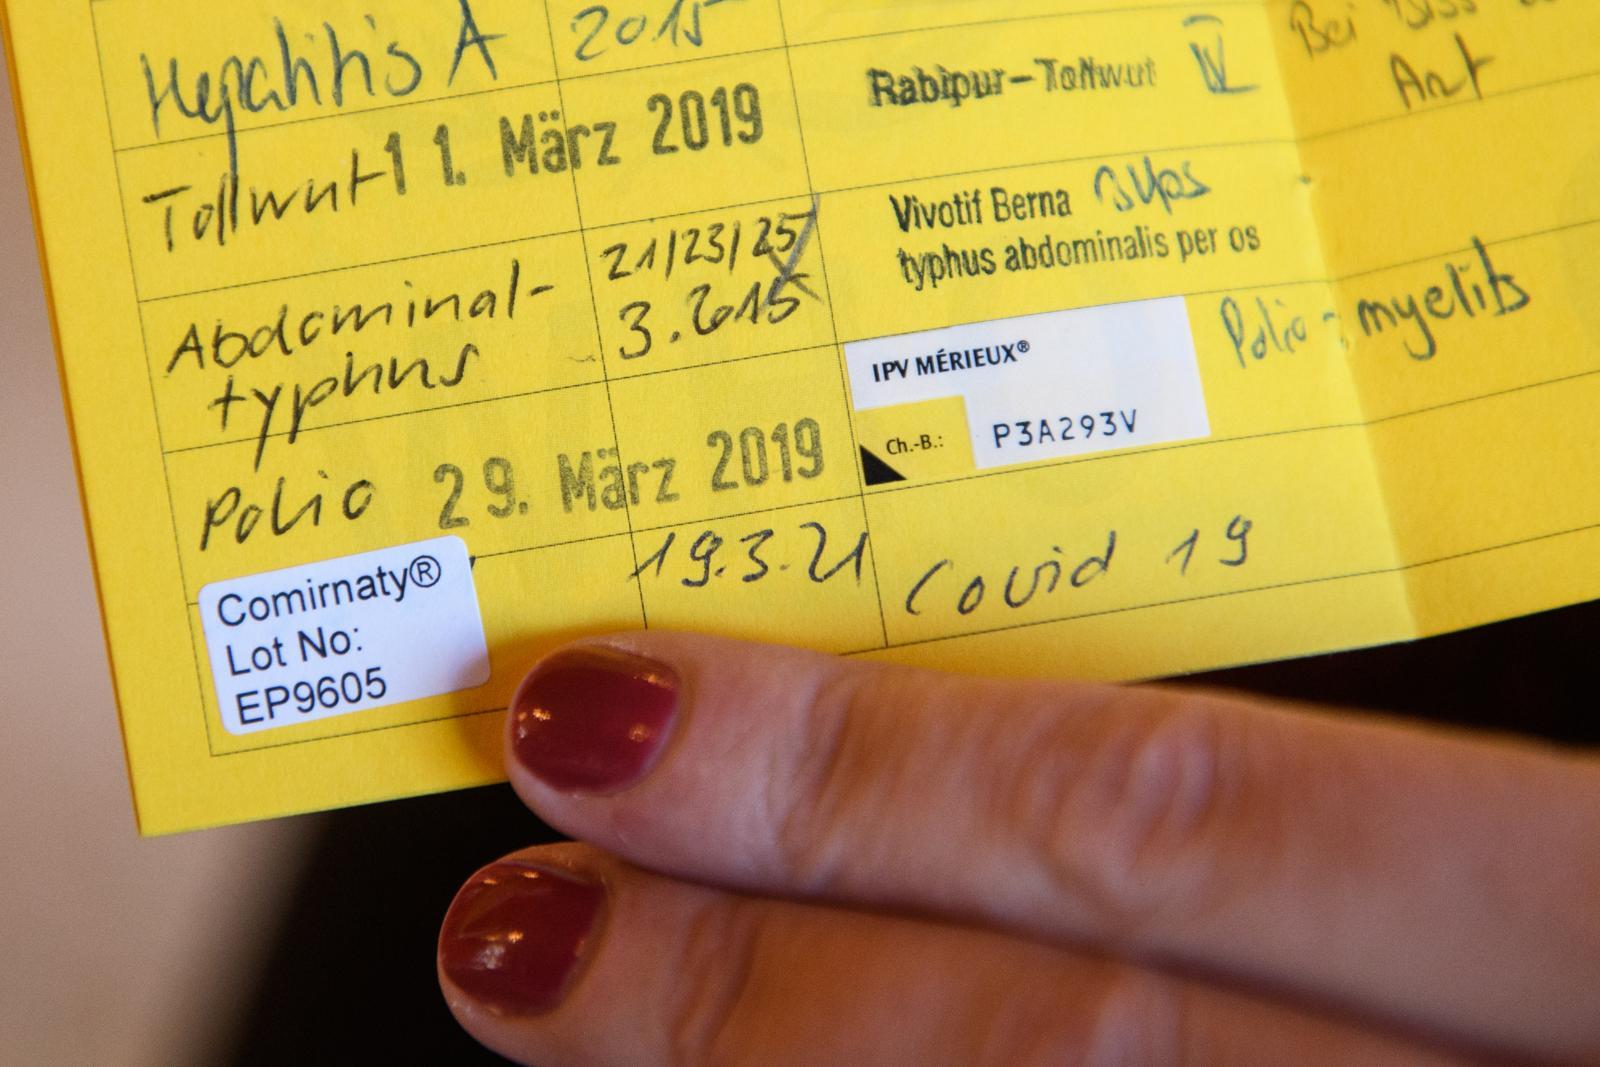 Hepatitis A 2015
Bei Biss
Tollwut 11. März 2019 Rabipur-Tollwut IV
Abdominal-
typhus
21/23/25
3.2015
Vivotif Berna
typhus abdominalis per os
Polio 29. März 2019
IPV MÉRIEUX®
Ch.-B.: P3A293V
Polio-myelitis
Comirnaty®
Lot No:
EP9605
19.3.21 Covid 19